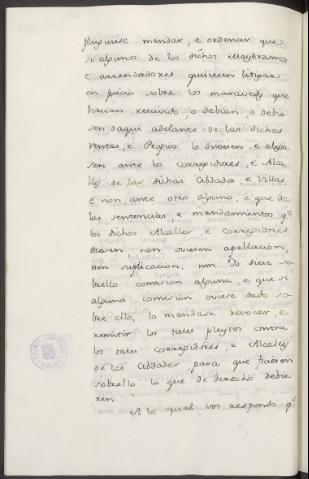 pluguiese mandar, e ordenar que
si algunos de los dichos Mayordomos
e arrendadores quisiesen litigar
en juicio sobre los maravedis que
havian recivido, o debian, o debie
sen daqui adelante de las dichas
rentas, e Propios lo dixesen, e alega
sen ante los Corregidores, e Alca
lles de las dichas Cibdades e Villas,
e non ante otro alguno, e que de
las sentencias, e mandamientos qe
los dichos Alcalles, e Corregidores
diesen non oviese apellacion,
nin suplicacion, nin Yo diese so
brello comision alguna, e que si
alguna comision oviese dado so
bre ello, la mandase revocar, e
remitir los tales pleytos contra
los tales Corregidores e Alcalles
de las Cibdades para que ficiesen
sobrello lo que de derecho debie
ren.
A lo qual vos respondo qe